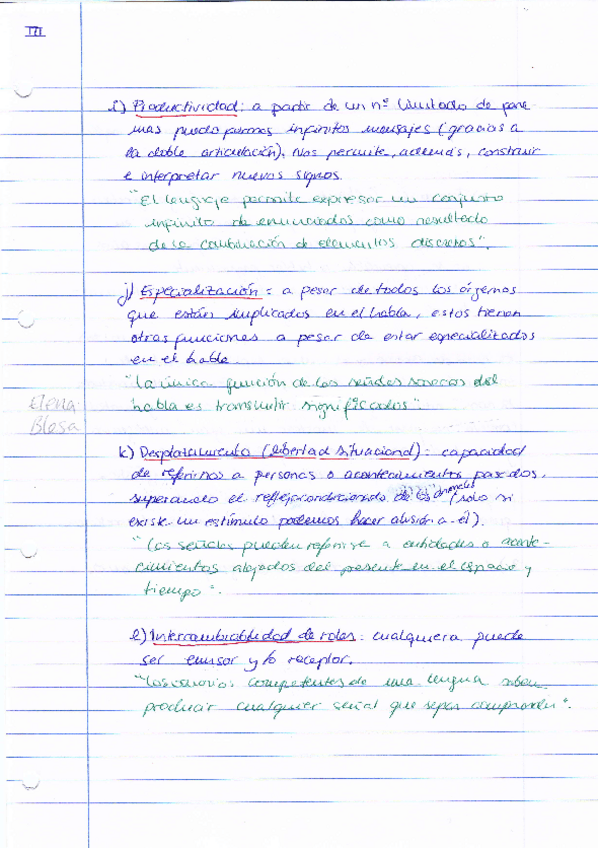 III
i) Productividad: a partir de un nº limitado de fone-
mas puedo formar infinitos mensajes (gracias a
la doble articulación). Nos permite, además, construir
e interpretar nuevos signos.
"El lenguaje permite expresar un conjunto
infinito de enunciados como resultado
de la combinación de elementos discretos".
j) Especialización: a pesar de todos los órganos
que están implicados en el habla, estos tienen
otras funciones a pesar de estar especializados
en el habla.
"La única función de las señales sonoras del
habla es transmitir significados".
Elena
Blesa
k) Desplazamiento (libertad situacional): capacidad
de referirnos a personas o acontecimientos pasados,
superando el reflejo condicionado de los animales (solo si
existe un estímulo podemos hacer alusión a él).
"Las señales pueden referirse a entidades o aconte-
cimientos alejados del presente en el espacio y
tiempo".
l) Intercambiabilidad de roles: cualquiera puede
ser emisor y/o receptor.
"Los usuarios competentes de una lengua saben
producir cualquier señal que sepan comprender".